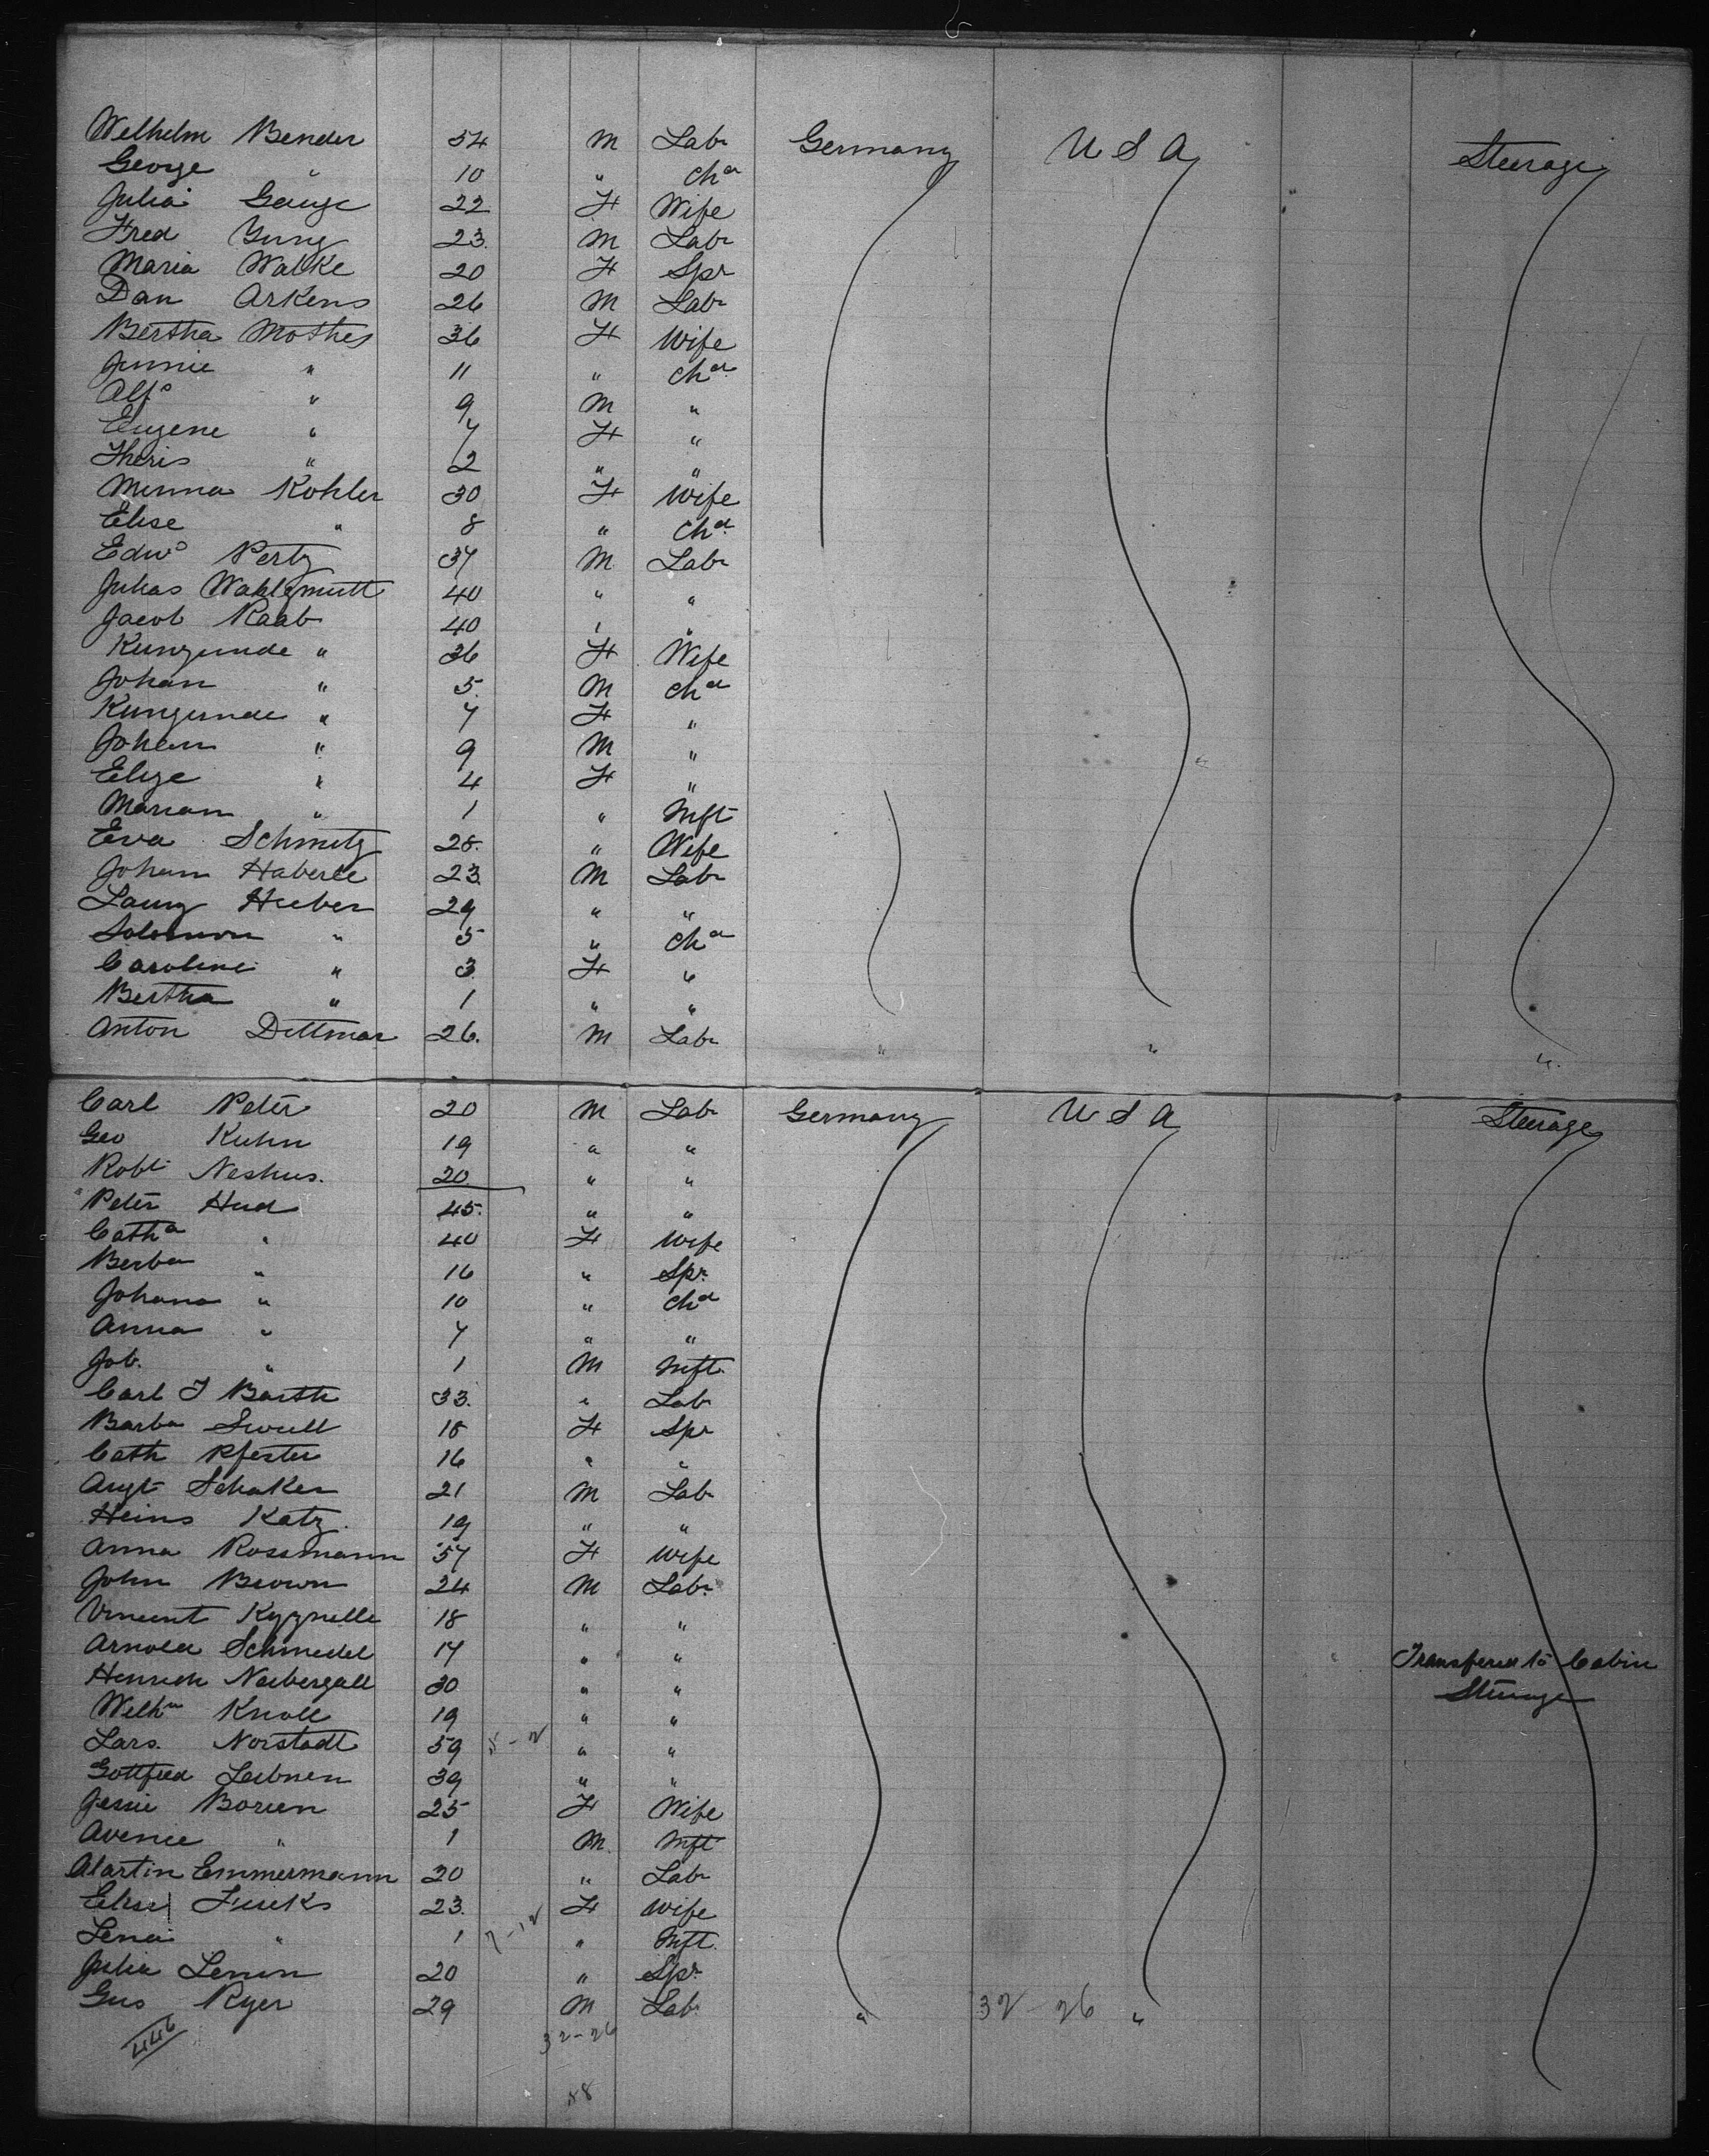 Welhelm Bender 54 M Lab Germany U S A Steerage
George " 10 " Chd
Julia Gauge 22 F Wife
Fred Yung 23 M Lab
Maria Walke 20 F Spr
Dan Arkens 26 M Lab
Bertha Mothes 36 F Wife
Jennie " 11 " Chd
Alfd " 9 M "
Eugene " 7 F "
Theris " 2 " "
Minna Kohler 30 F Wife
Elise " 8 " Chd
Edwd Pertz 37 M Lab
Julias Wahlgmutt 40 " "
Jacob Raab 40 " "
Kungunde " 36 F Wife
Johan " 5 M Chd
Kungunde " 7 F "
Johan " 9 M "
Elize " 4 F "
Marian " 1 " Inft
Eva Schmitz 28 " Wife
Johan Haberle 23 M Lab
Huber 29 " "
Solomon " 5 " Chd
Caroline " 3 F "
Bertha " 1 " "
Anton Dittmar 26 M Lab " " "
Carl Peter 20 M Lab Germany U S A Steerage
Geo Kuhn 19 " "
Robt Neshus. 20 " "
Peter Hud 45 " "
Catha " 40 F Wife
Berba " 16 " Spr
Johana " 10 " Chd
Anna " 7 " "
Job. " 1 M Inft
Carl J Barth 33 " Lab
Barba Swull 18 F Spr
Cath Pfester 16 " "
Augt Schaker 21 M Lab
Heins Katz 19 " "
Anna Rossmann 57 F Wife
John Brown 24 M Lab
Vincent 18 " "
Arnold Schmedel 17 " " Transfered to Cabin
Henrich Neibergall 30 " " Steerage
Welhm Knoll 19 " "
Lars. Norstadt 59 " "
Gottfried Leibnen 39 " "
Jessie Boreen 25 F Wife
Avenie " 1 M Inft
Martin Emmermann 20 " Lab
Elise Fuuks 23 F Wife
Lena " 1 " Inft
Julia Lenin 20 " Spr
Gus Ryer 29 M Lab " 32-26 "
446 32-26
58